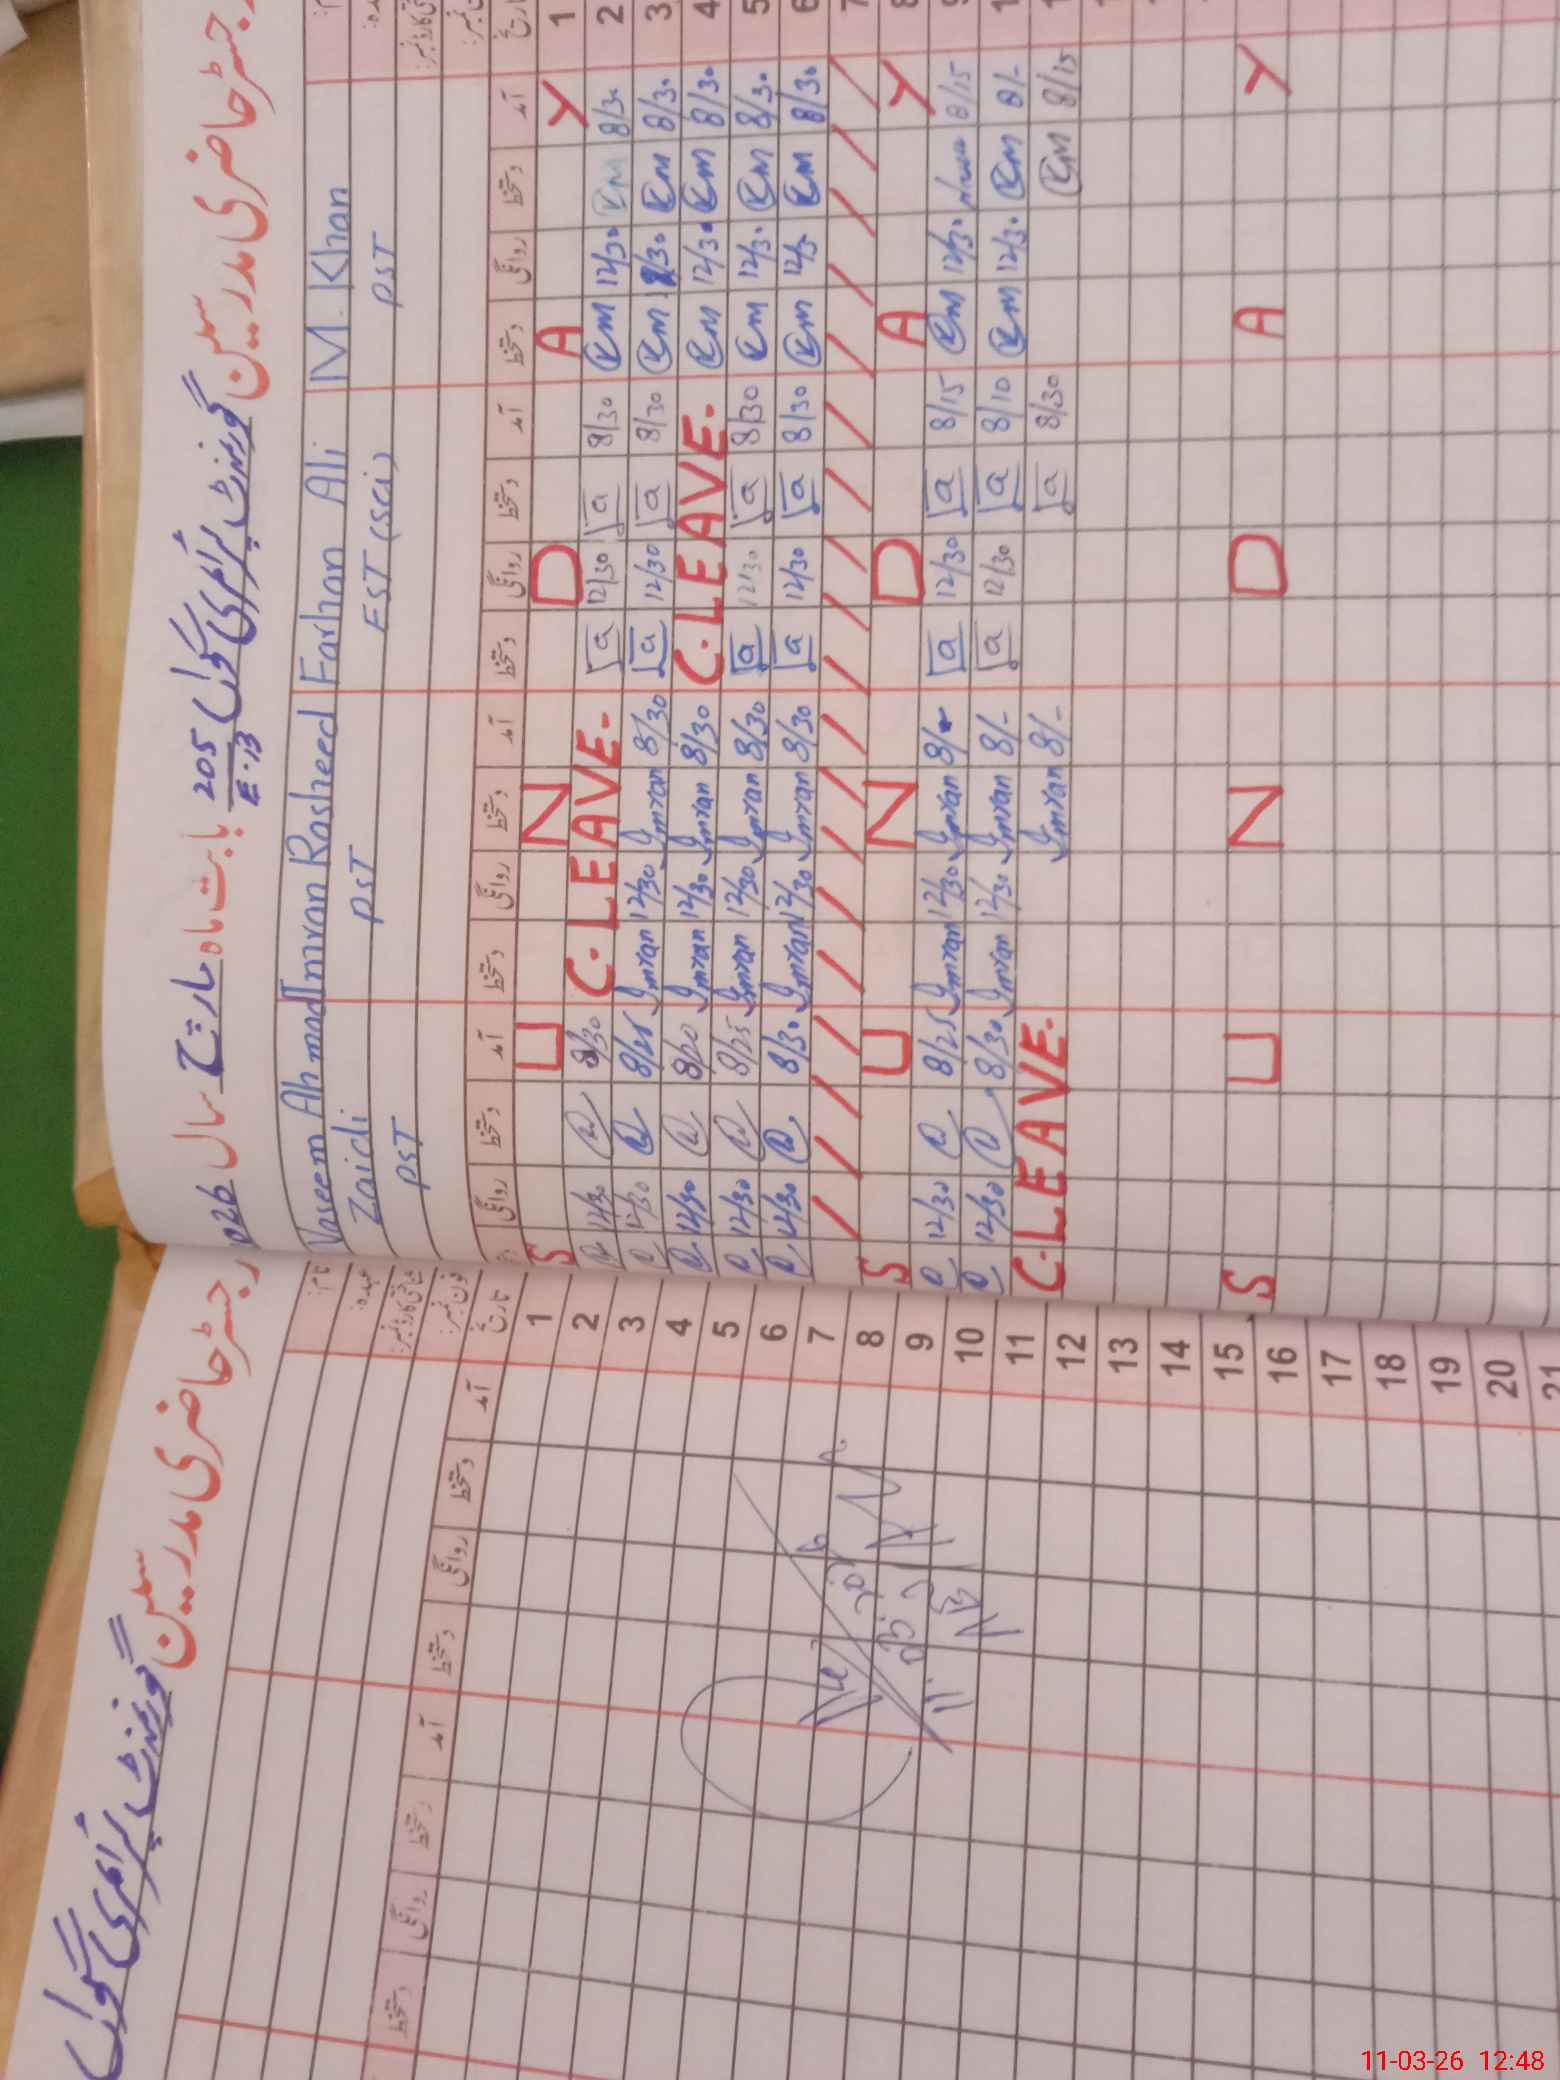 رجسٹر حاضری مدرسین گورنمنٹ پرائمری سکول 205 E.B بابت ماہ مارچ سال 026
M. Khan Farhan Ali Imran Rasheed Waseem Ahmad
PST EST (sci) PST Zaidi
PST
تاریخ آمد دستخط روانگی دستخط آمد دستخط روانگی دستخط آمد دستخط روانگی دستخط آمد دستخط روانگی
1 Y A D N U S
2 8/30 KM 12/30 KM 8/30 a 12/30 a C. LEAVE. 8/30 12/30
3 8/30 KM KM 8/30 a 12/30 a 8/30 Imran 12/30 Imran 8/25 12/30
4 8/30 KM 12/30 KM C. LEAVE. 8/30 Imran 12/30 Imran 8/20 12/30
5 8/30 KM 12/30 KM 8/30 a 12/30 a 8/30 Imran 12/30 Imran 8/25 12/30
6 8/30 KM 12/3 KM 8/30 a 12/30 a 8/30 Imran 12/30 Imran 8/30 12/30
7
8 Y A D N U S
9 8/15 12/30 KM 8/15 a 12/30 a 8/- Imran 12/30 Imran 8/25 12/30
10 8/- KM 12/30 KM 8/10 a 12/30 a 8/- Imran 12/30 Imran 8/30 12/30
8/15 KM 8/30 a 8/- Imran C. LEAVE.
Y A D N U S
رجسٹر حاضری مدرسین گورنمنٹ پرائمری سکول
نام:
عہدہ:
شناختی کارڈ نمبر:
فون نمبر:
تاریخ آمد دستخط روانگی دستخط آمد دستخط روانگی دستخط
1
2
3
4
5
6
7
8
9
10
11
12
13
14
15
16
17
18
19
20
21
11-03-26 12:48